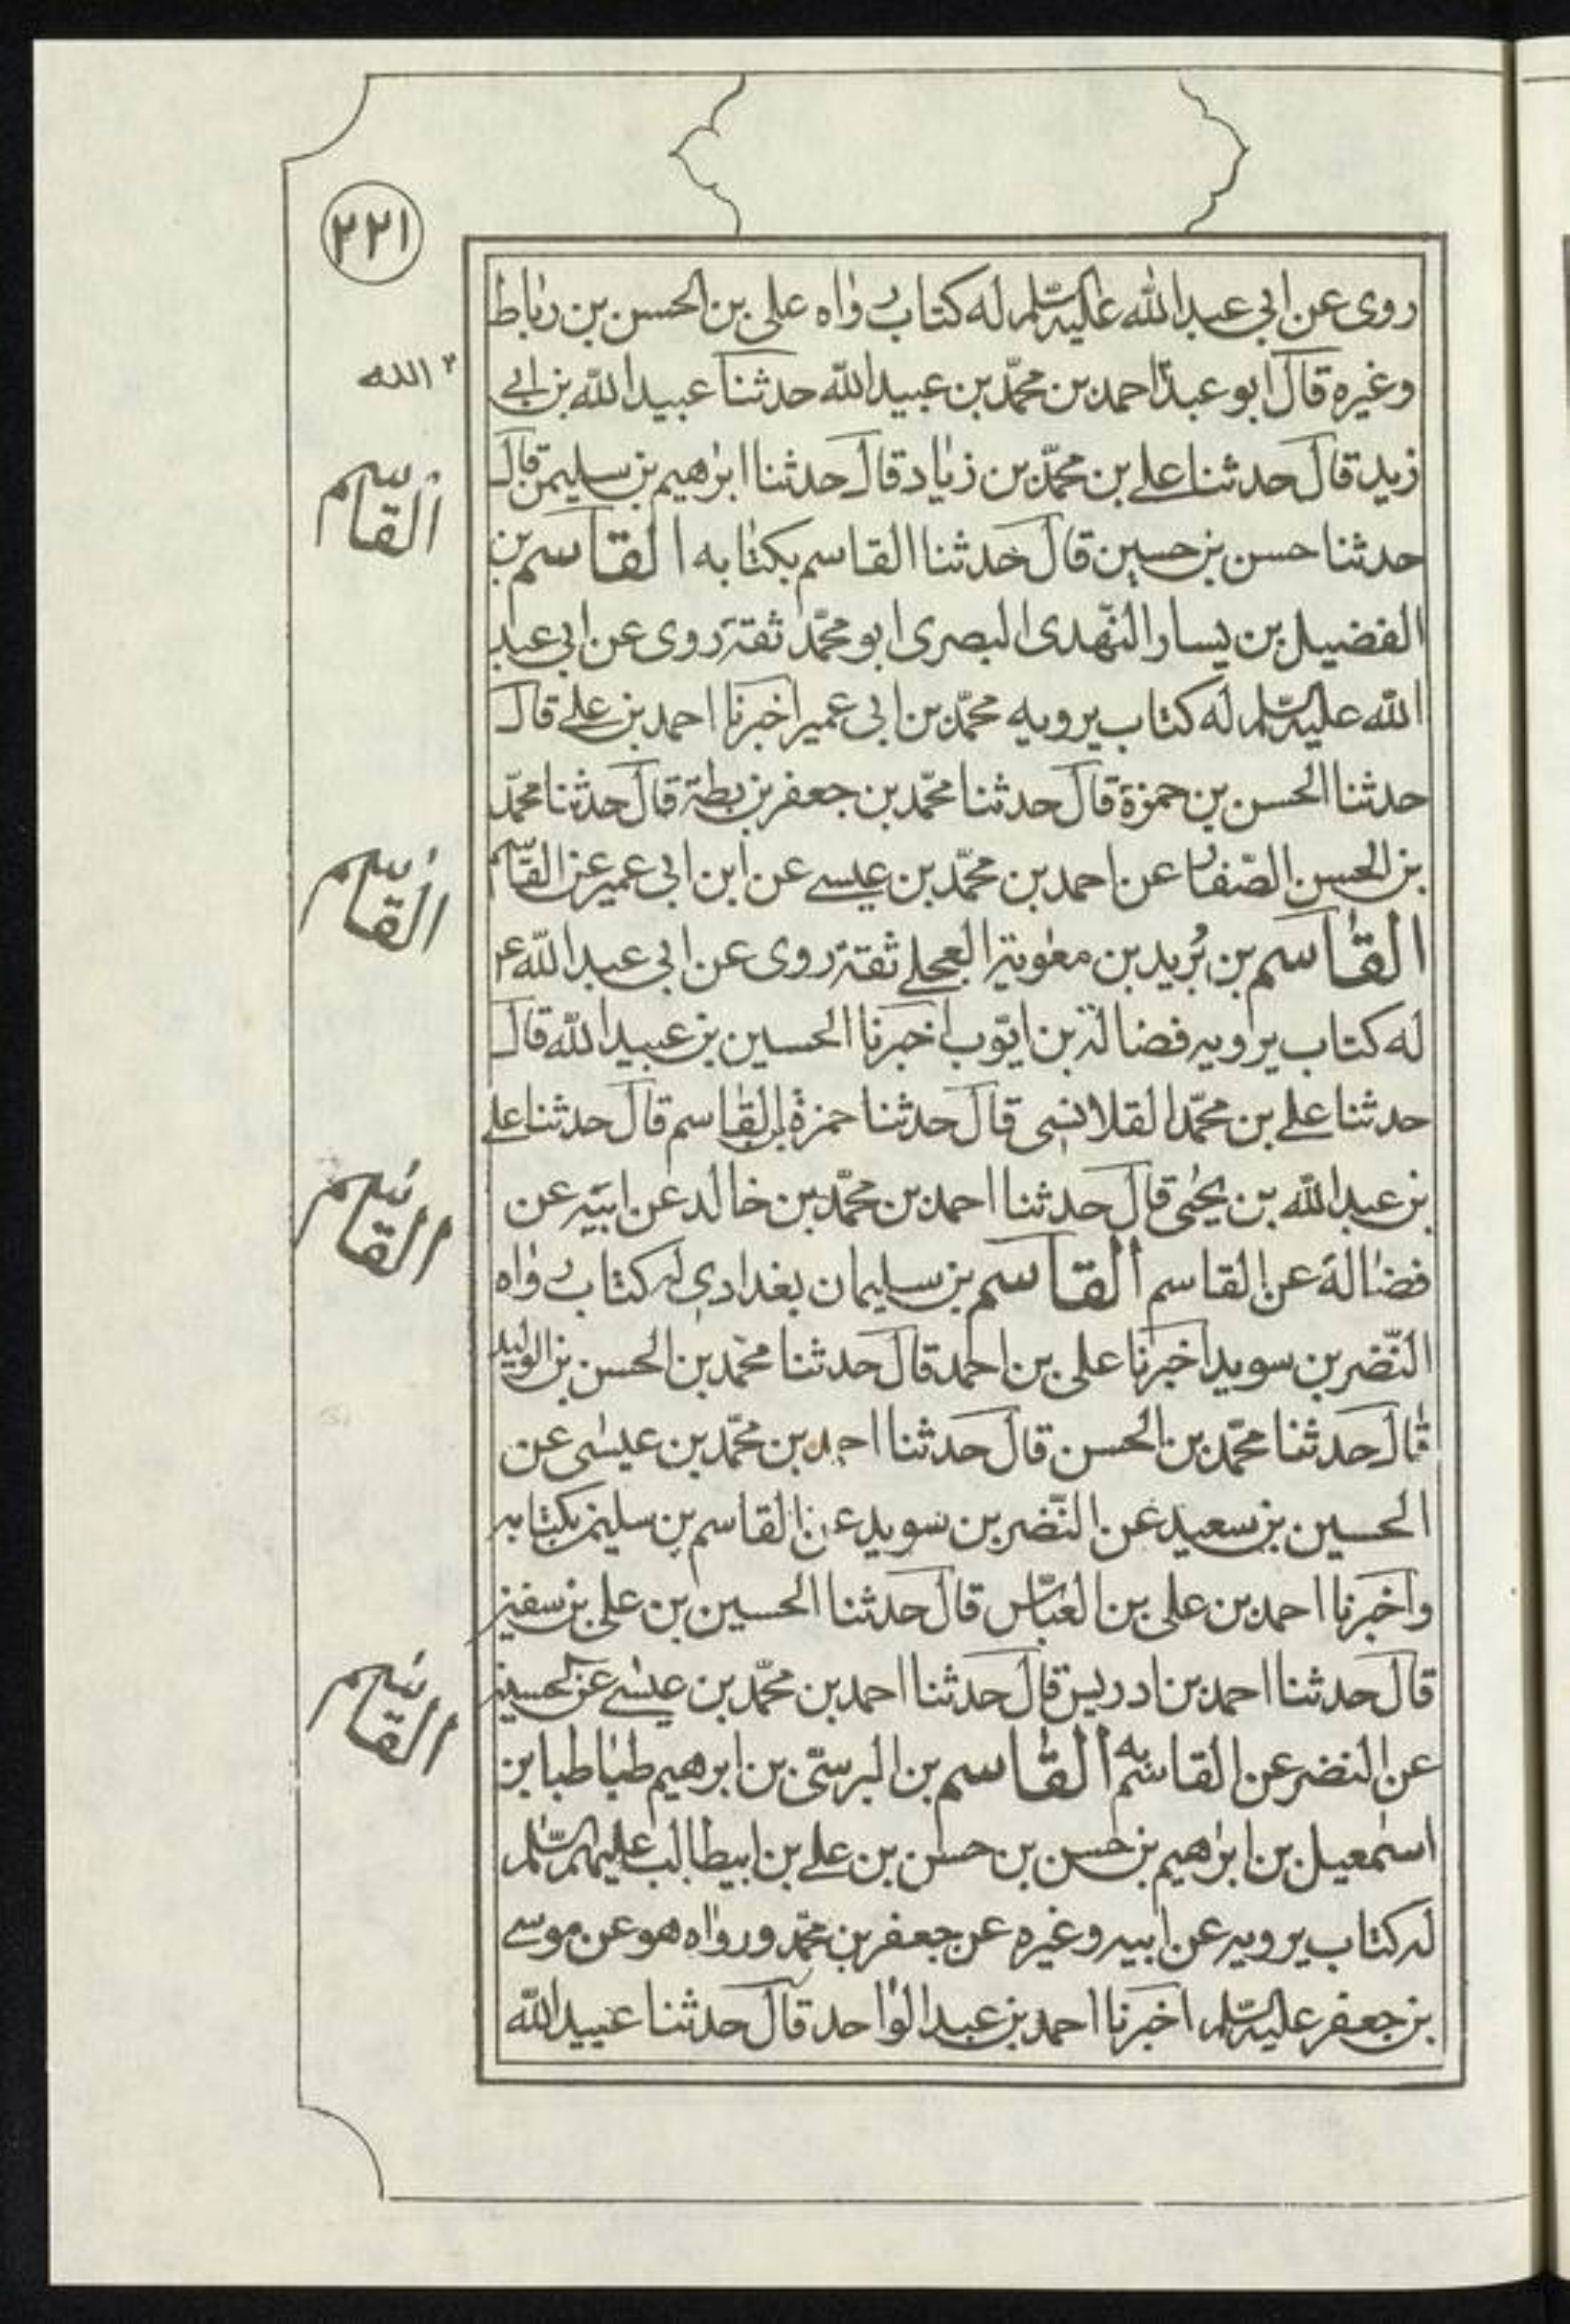 ٢٢١
روى عن ابى عبدالله عليه السّلم له كتاب رواه على بن الحسن بن رباط
وغيره قال ابو عبد احمد بن محمّد بن عبيدالله حدثنا عبيدالله بن ابى
الله
زيد قال حدثنا على بن محمّد بن زياد قال حدثنا ابرهيم بن سليمن قال
القاسم
حدثنا حسن بن حسين قال حدثنا القاسم بكتابه القاسم بن
الفضيل بن يسار النّهدى البصرى ابو محمّد ثقة روى عن ابى عبد
الله عليه السّلم له كتاب يرويه محمّد بن ابى عمير اخبرنا احمد بن على قال
حدثنا الحسن بن حمزة قال حدثنا محمّد بن جعفر بن بطة قال حدثنا محمّد
بن الحسن الصّفار عن احمد بن محمّد بن عيسى عن ابن ابى عمير عن القاسم
القاسم
القاسم بن بُريد بن معوية العجلى ثقة روى عن ابى عبدالله ع
له كتاب يرويه فضالة بن ايّوب اخبرنا الحسين بن عبيدالله قال
حدثنا على بن محمّد القلانسى قال حدثنا حمزة بن القاسم قال حدثنا على
بن عبدالله بن يحيى قال حدثنا احمد بن محمّد بن خالد عن ابيه عن
القاسم
فضالة عن القاسم القاسم بن سليمان بغدادى له كتاب رواه
النّضر بن سويد اخبرنا على بن احمد قال حدثنا محمّد بن الحسن بن الوليد
قال حدثنا محمّد بن الحسن قال حدثنا احمد بن محمّد بن عيسى عن
الحسين بن سعيد عن النّضر بن سويد عن القاسم بن سليمن بكتابه
واخبرنا احمد بن على بن العبّاس قال حدثنا الحسين بن على بن سفين
قال حدثنا احمد بن ادريس قال حدثنا احمد بن محمّد بن عيسى عن الحسين
القاسم
عن النضر عن القاسم به القاسم بن البرسّى بن ابرهيم طباطبا بن
اسمعيل بن ابرهيم بن حسن بن حسن بن على بن ابيطالب عليهم السّلم
له كتاب يرويه عن ابيه وغيره عن جعفر بن محمّد ورواه هو عن موسى
بن جعفر عليه السّلم اخبرنا احمد بن عبدالواحد قال حدثنا عبيدالله